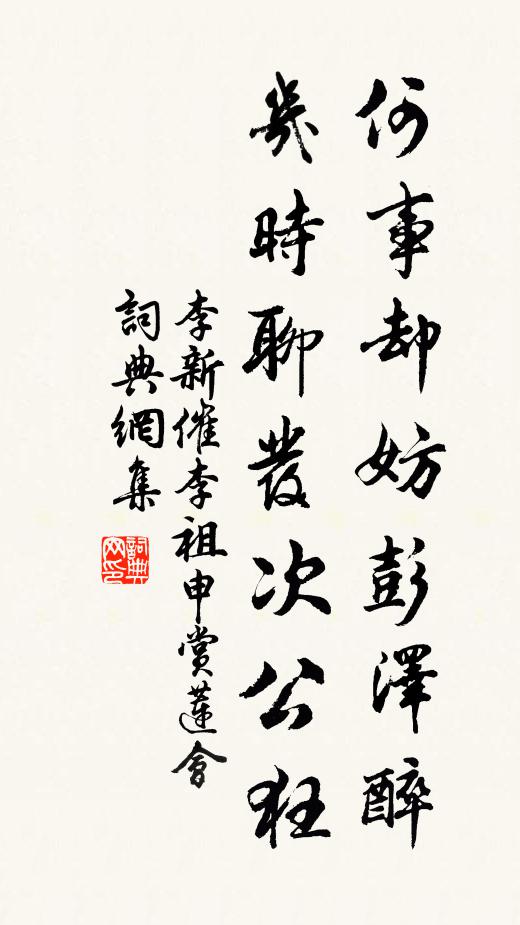 何事却妨彭澤醉
幾時聊發次公狂
李新催李祖申賞蓮會
詞典網集
詞典網印